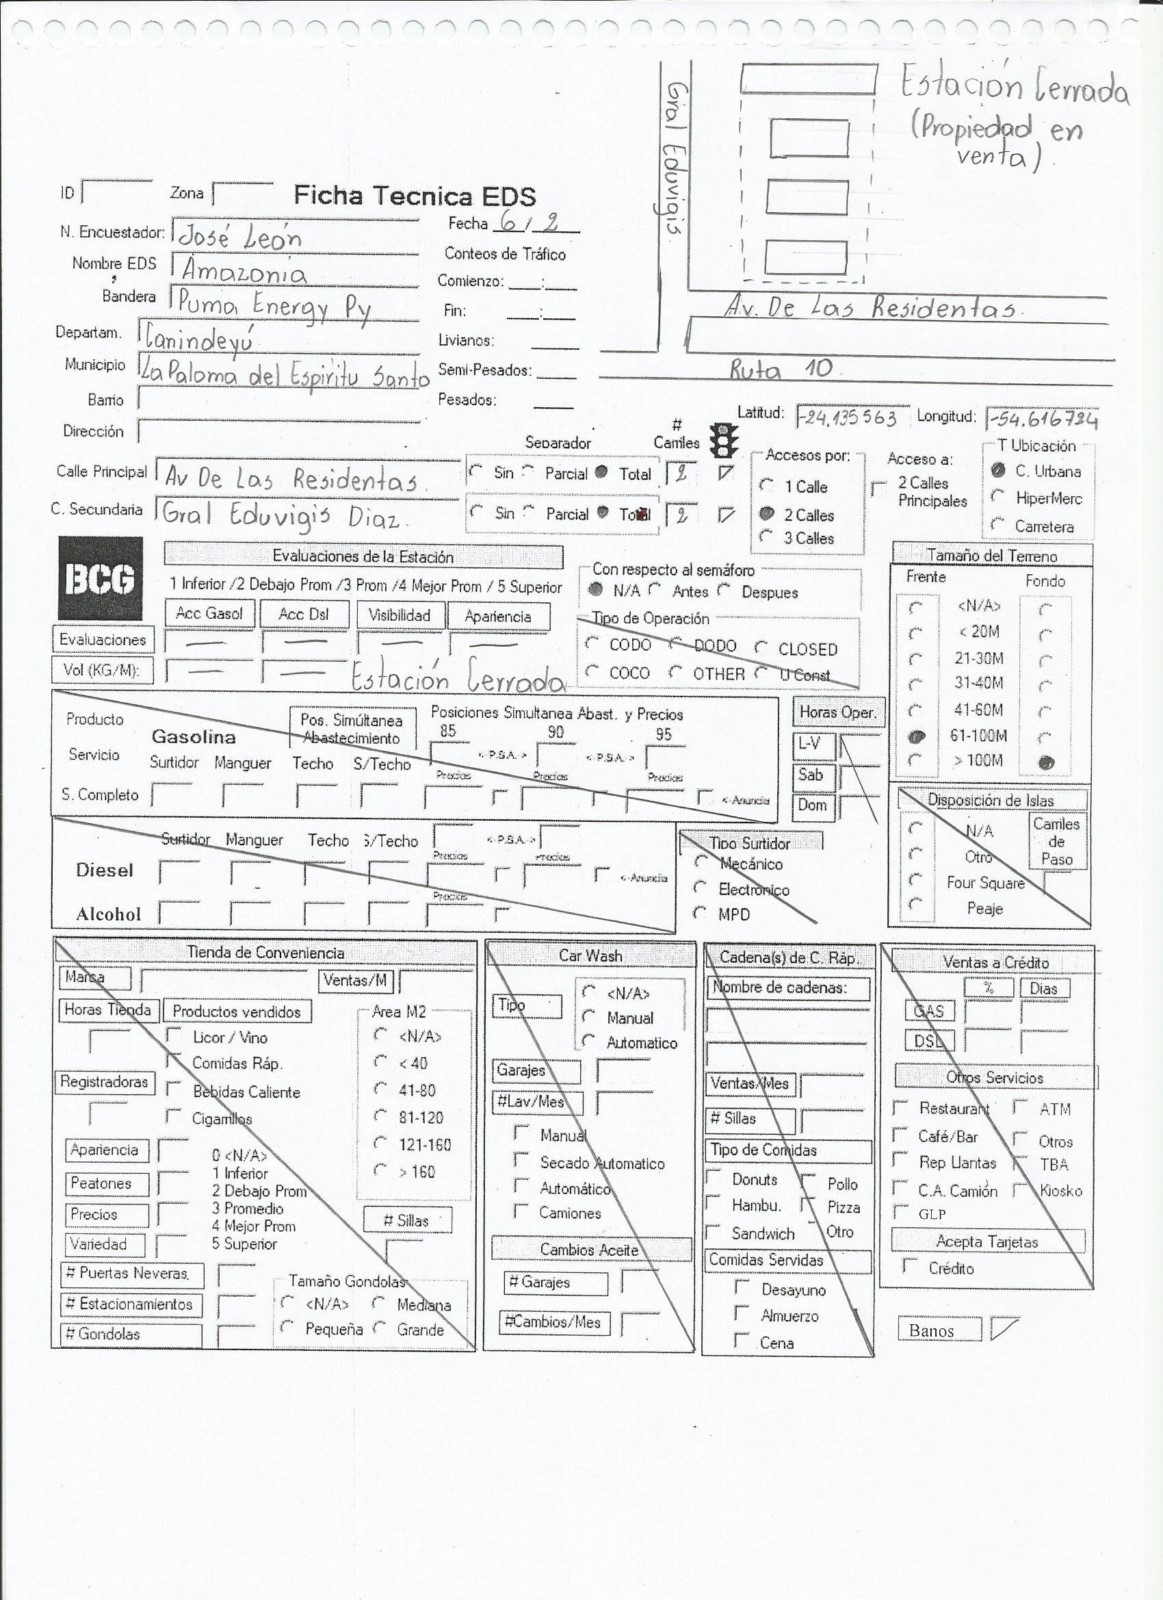 Estación Cerrada
(Propiedad en
venta).
Gral Eduvigis.
Av. De Las Residentas.
Ruta 10
ID Zona Ficha Tecnica EDS
N. Encuestador: José León Fecha 6 / 2
Nombre EDS Amazonia Conteos de Tráfico
Bandera Puma Energy Py Comienzo: :
Departam. Canindeyú Fin: :
Livianos:
Municipio La Paloma del Espiritu Santo Semi-Pesados:
Barrio Pesados:
Dirección
Latitud: -24,135563 Longitud: -54.616724
Separador # Carriles
Calle Principal Av De Las Residentas. Sin Parcial Total 2
C. Secundaria Gral Eduvigis Diaz. Sin Parcial Total 2
Accesos por:
1 Calle
2 Calles
3 Calles
Acceso a:
2 Calles
Principales
T Ubicación
C. Urbana
HiperMerc
Carretera
BCG
Evaluaciones de la Estación
1 Inferior /2 Debajo Prom /3 Prom /4 Mejor Prom / 5 Superior
Acc Gasol Acc Dsl Visibilidad Apariencia
Evaluaciones — — — —
Vol (KG/M): — —
Estación Cerrada
Con respecto al semáforo
N/A Antes Despues
Tipo de Operación
CODO DODO CLOSED
COCO OTHER U Const
Tamaño del Terreno
Frente Fondo
<N/A>
< 20M
21-30M
31-40M
41-60M
61-100M
> 100M
Producto
Servicio
Gasolina
Pos. Simúltanea
Abastecimiento
Posiciones Simultanea Abast. y Precios
85 90 95
<-P.S.A.-> <-P.S.A.->
Surtidor Manguer Techo S/Techo Precios Precios Precios
S. Completo <-Anuncia
Horas Oper.
L-V
Sab
Dom
Surtidor Manguer Techo S/Techo <-P.S.A.->
Precios Precios
Diesel <-Anuncia
Precios
Alcohol
Tipo Surtidor
Mecánico
Electronico
MPD
Disposición de Islas
N/A
Otro
Four Square
Peaje
Carriles
de
Paso
Tienda de Conveniencia
Marca Ventas/M
Horas Tienda Productos vendidos
Licor / Vino
Comidas Ráp.
Registradoras
Bebidas Caliente
Cigarrillos
Area M2
<N/A>
< 40
41-80
81-120
121-160
> 160
Apariencia
Peatones
Precios
Variedad
0 <N/A>
1 Inferior
2 Debajo Prom
3 Promedio
4 Mejor Prom
5 Superior
# Sillas
# Puertas Neveras.
# Estacionamientos
# Gondolas
Tamaño Gondolas
<N/A> Mediana
Pequeña Grande
Car Wash
Tipo
<N/A>
Manual
Automatico
Garajes
#Lav/Mes
Manual
Secado Automatico
Automático
Camiones
Cambios Aceite
# Garajes
#Cambios/Mes
Cadena(s) de C. Ráp.
Nombre de cadenas:
Ventas/Mes
# Sillas
Tipo de Comidas
Donuts Pollo
Hambu. Pizza
Sandwich Otro
Comidas Servidas
Desayuno
Almuerzo
Cena
Ventas a Crédito
% Dias
GAS
DSL
Otros Servicios
Restaurant ATM
Café/Bar Otros
Rep Llantas TBA
C.A. Camión Kiosko
GLP
Acepta Tarjetas
Crédito
Banos